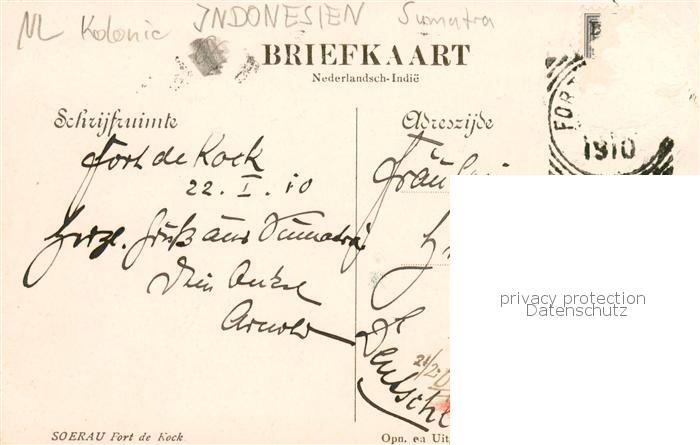 NL Kolonie INDONESIEN Sumatra
BRIEFKAART
Nederlandsch-Indië
Schrijfruimte
Adreszijde
FOR
1910
Fort de Kock
22. I. 10
Herzl. Gruß aus Sumatra
Dein Onkel
Arnold
Fräulein
Deutschl
privacy protection
Datenschutz
SOERAU Fort de Kock
Opn. en Uit